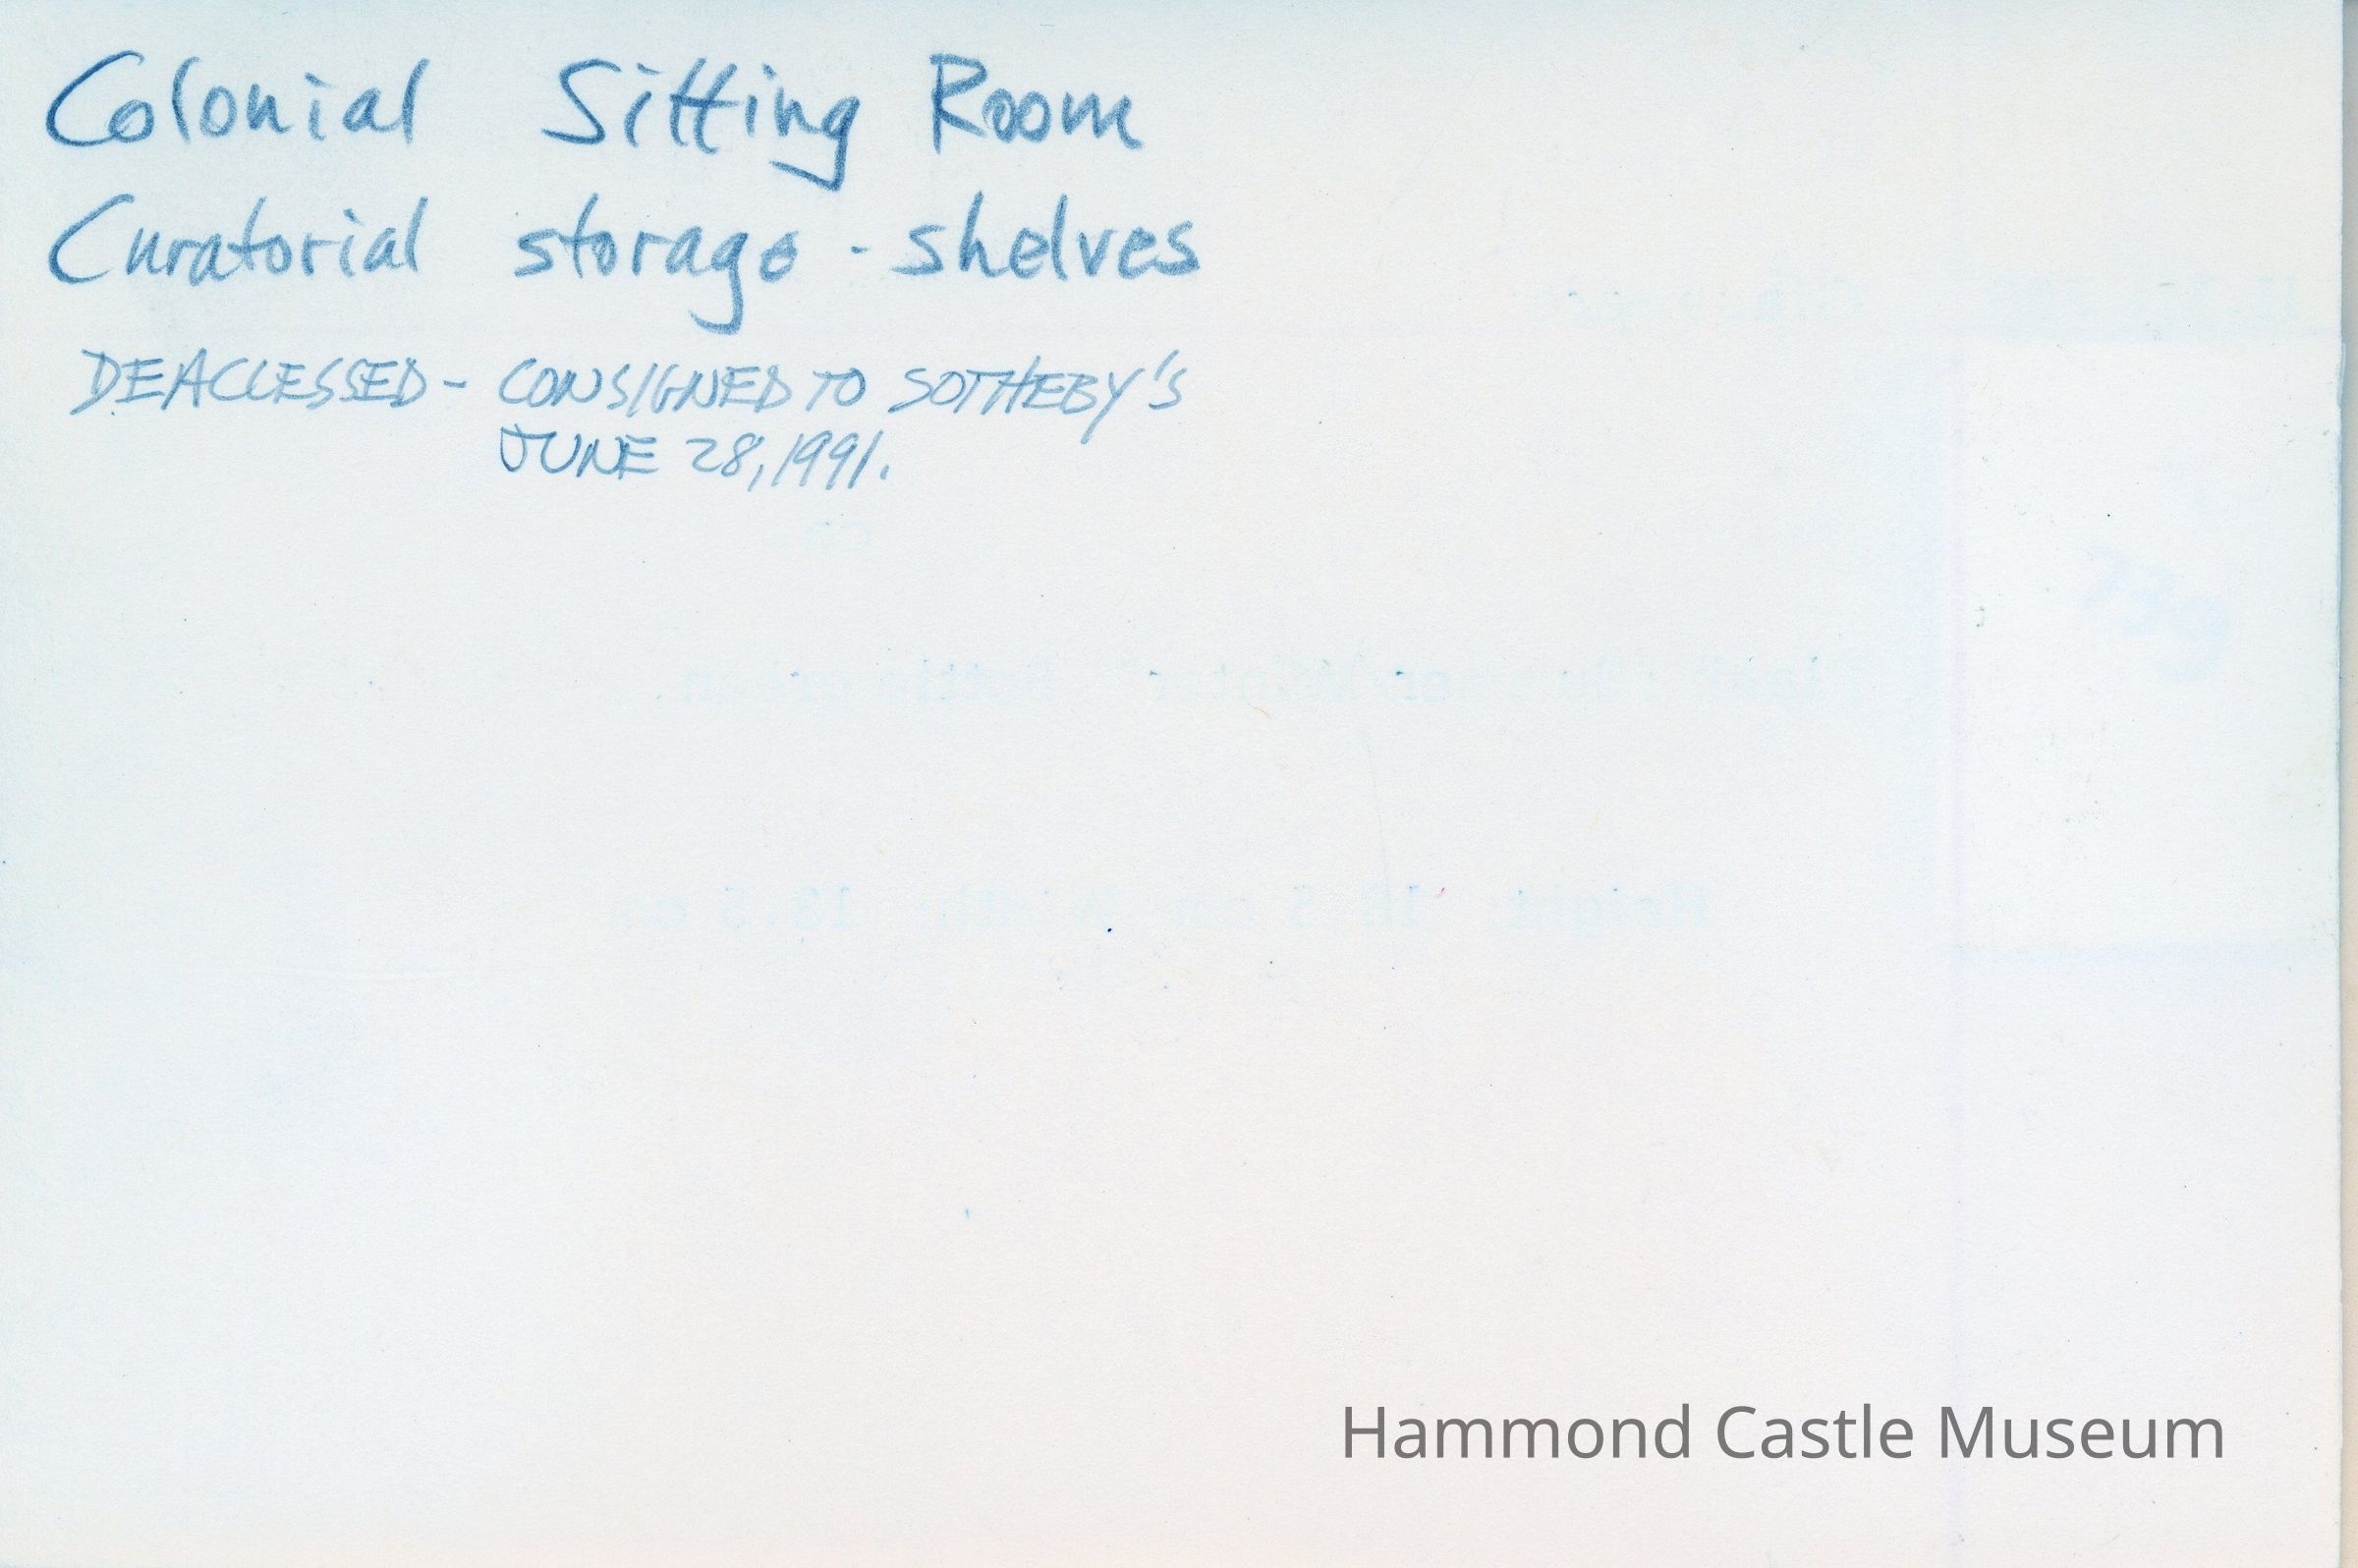 Colonial Sitting Room
Curatorial storage - shelves
DEACCESSED - CONSIGNED TO SOTHEBY'S
JUNE 28, 1991.
Hammond Castle Museum